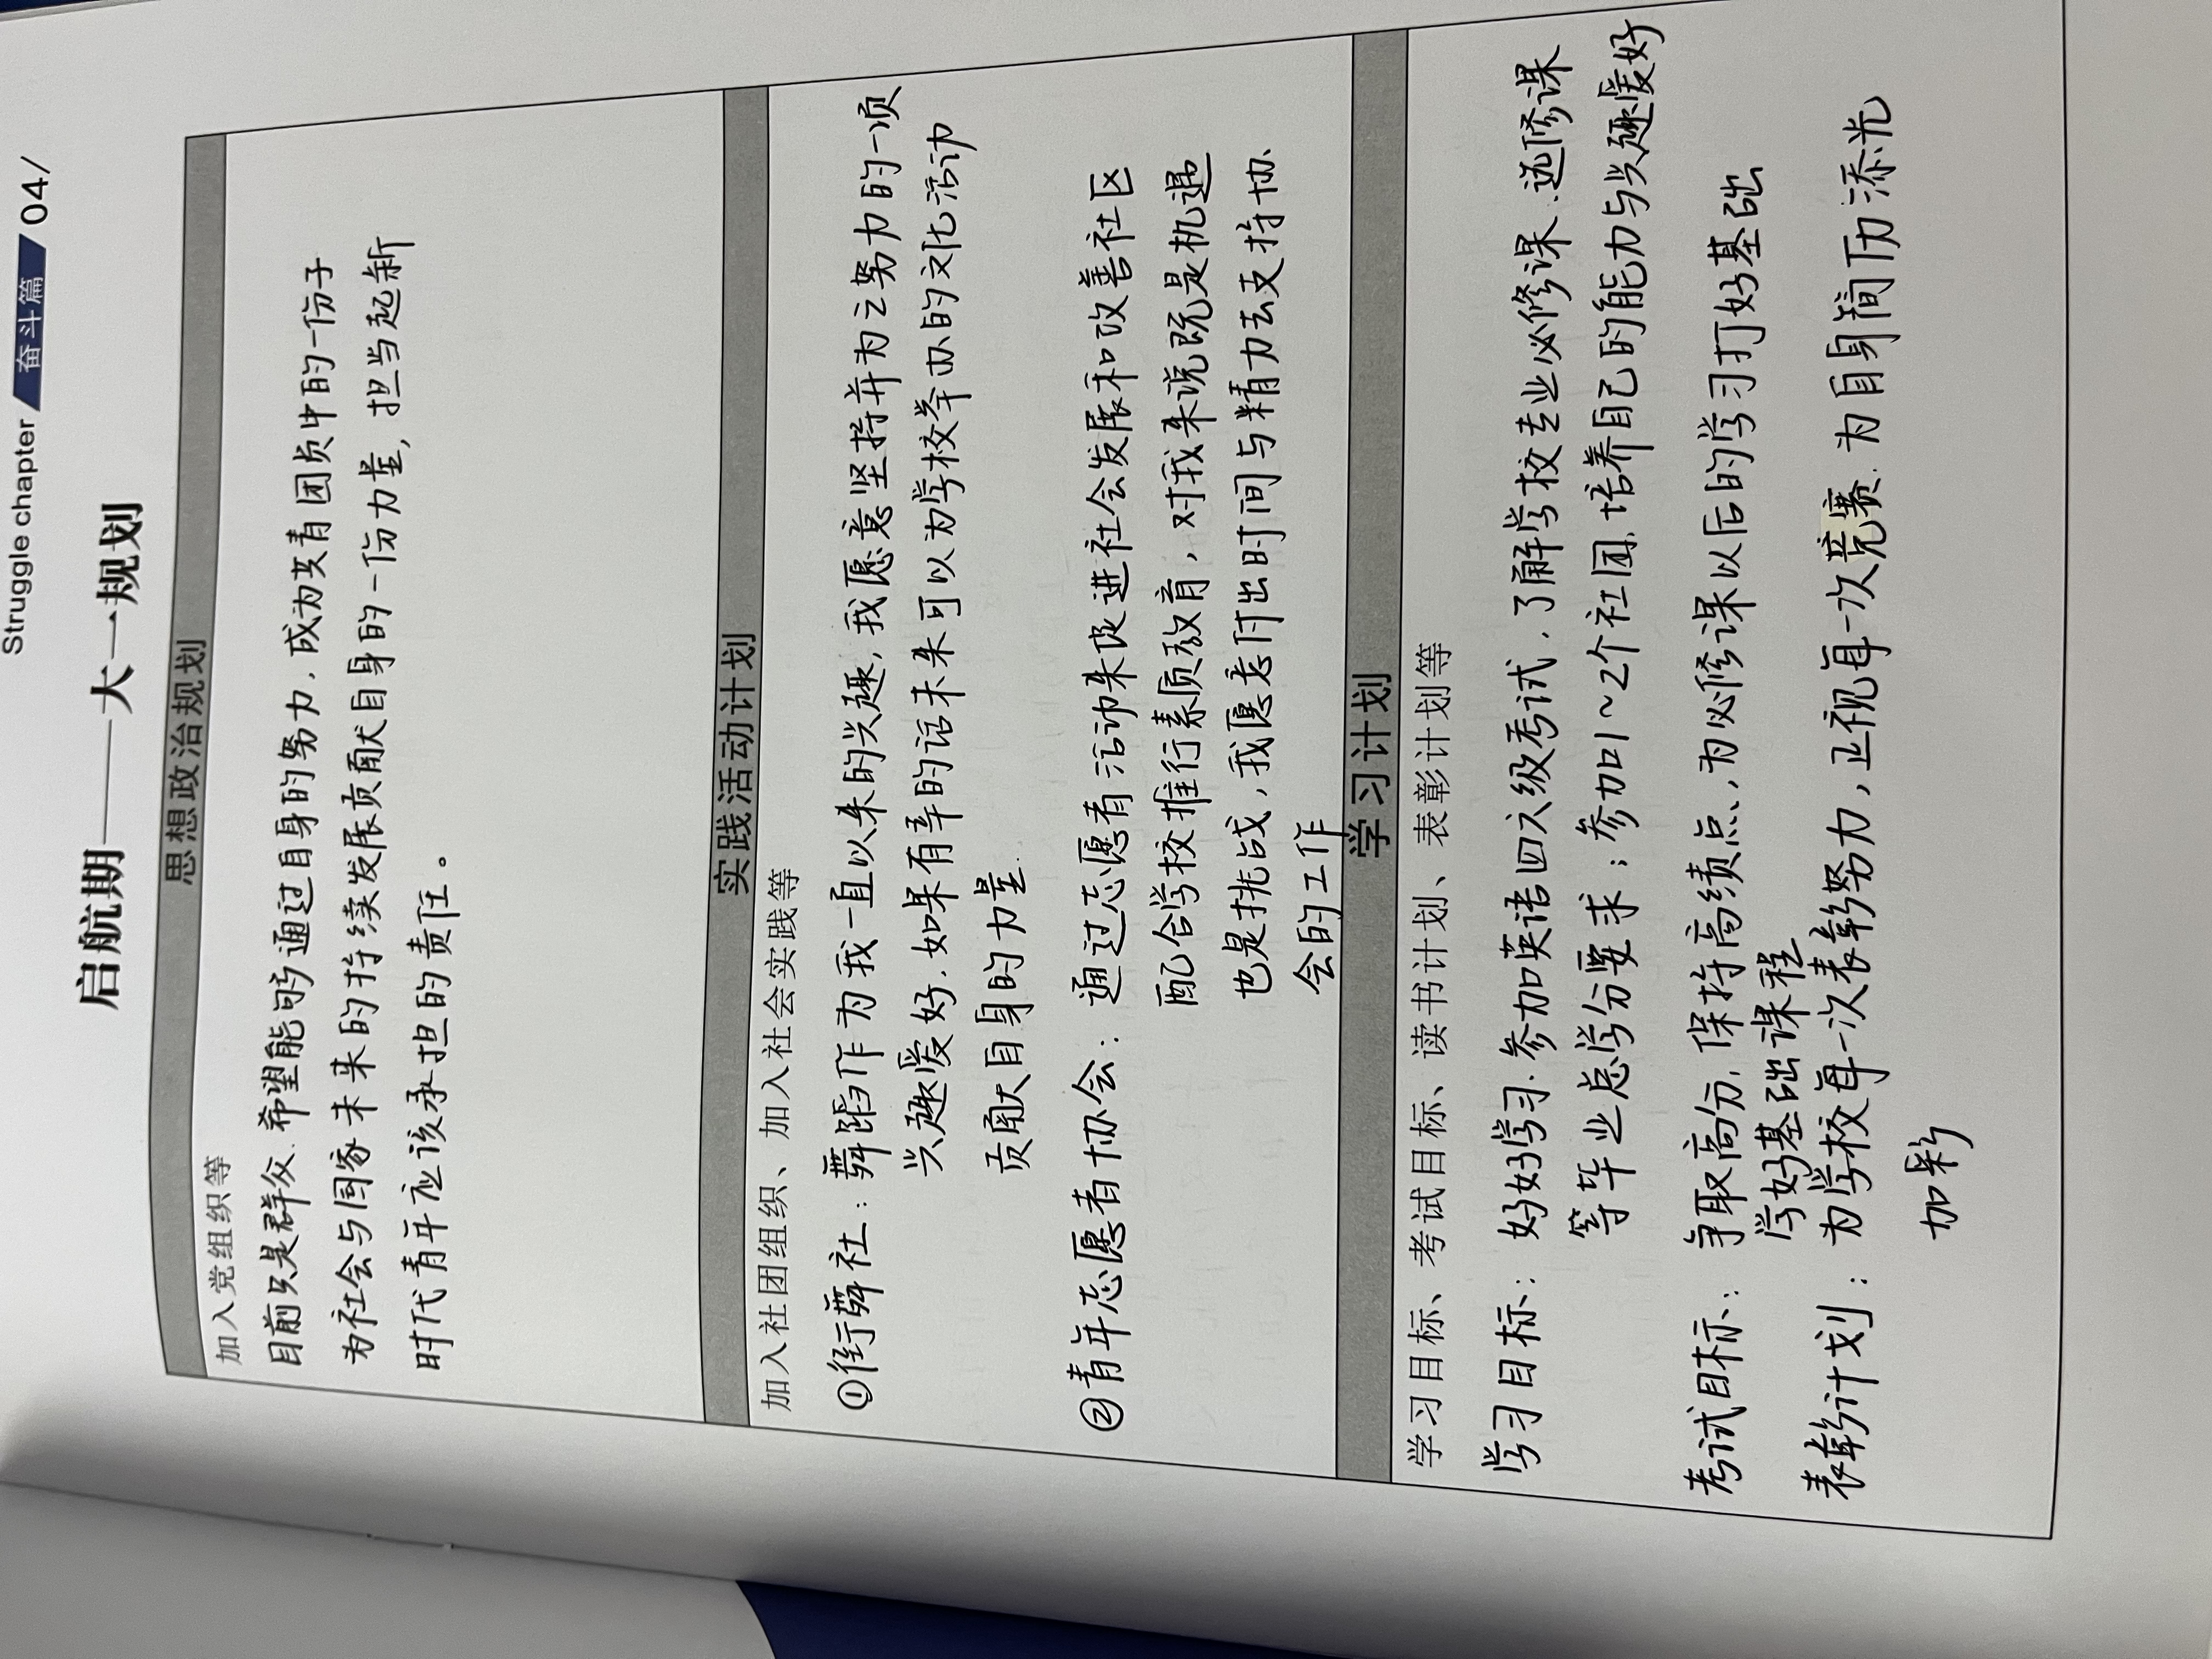 Struggle chapter 奋斗篇 /04/
启航期——大一规划
思想政治规划
加入党组织等
目前只是群众.希望能够通过自身的努力,成为共青团员中的一份子
为社会与国家未来的持续发展贡献自身的一份力量,担当起新
时代青年应该承担的责任。
实践活动计划
加入社团组织、加入社会实践等
①街舞社:舞蹈作为我一直以来的兴趣,我愿意坚持并为之努力的一项
兴趣爱好.如果有幸的话未来可以为学校举办的文化活动
贡献自身的力量.
②青年志愿者协会:通过志愿者活动来促进社会发展和改善社区
配合学校推行素质教育,对我来说既是机遇
也是挑战,我愿意付出时间与精力去支持协
会的工作
学习计划
学习目标、考试目标、读书计划、表彰计划等
学习目标:好好学习.参加英语四六级考试,了解学校专业必修课.选修课
等毕业总学分要求;参加1~2个社团.培养自己的能力与兴趣爱好
考试目标:争取高分,保持高绩点,为必修课以后的学习打好基础
学好基础课程
表彰计划:为学校每一次表彰努力,正视每一次竞赛.为自身简历添光
加彩